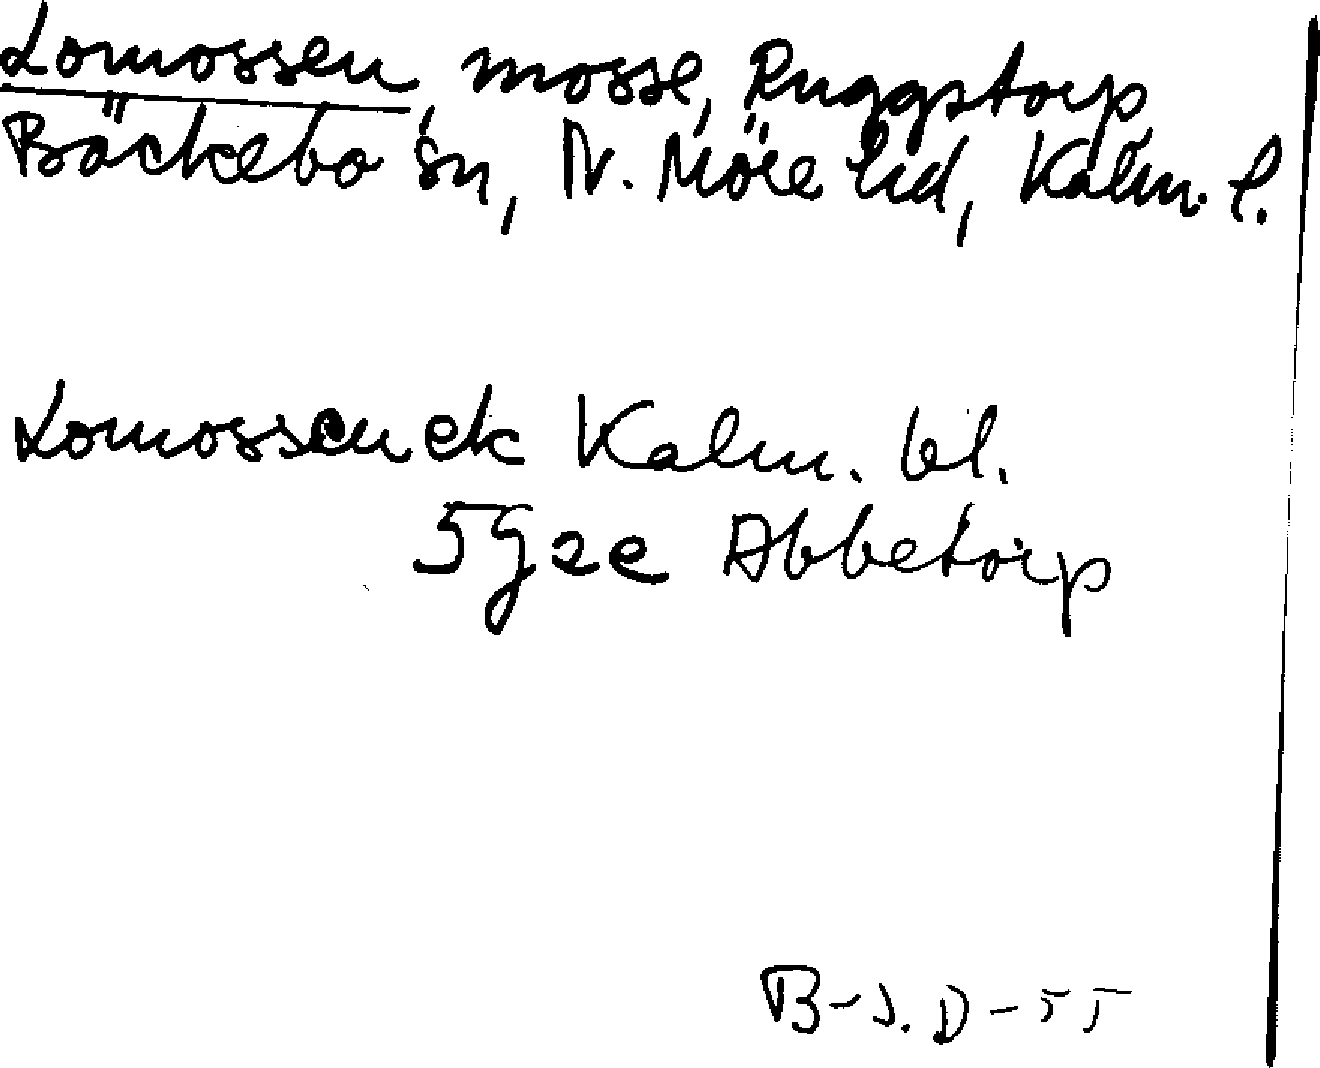 Lomossen, mosse, Ruggstorp,
Bäckebo sn, N. Möre hd, Kalm. l.
Lomossen ek Kalm. bl.
5G2e Abbetorp
B-J. D-55